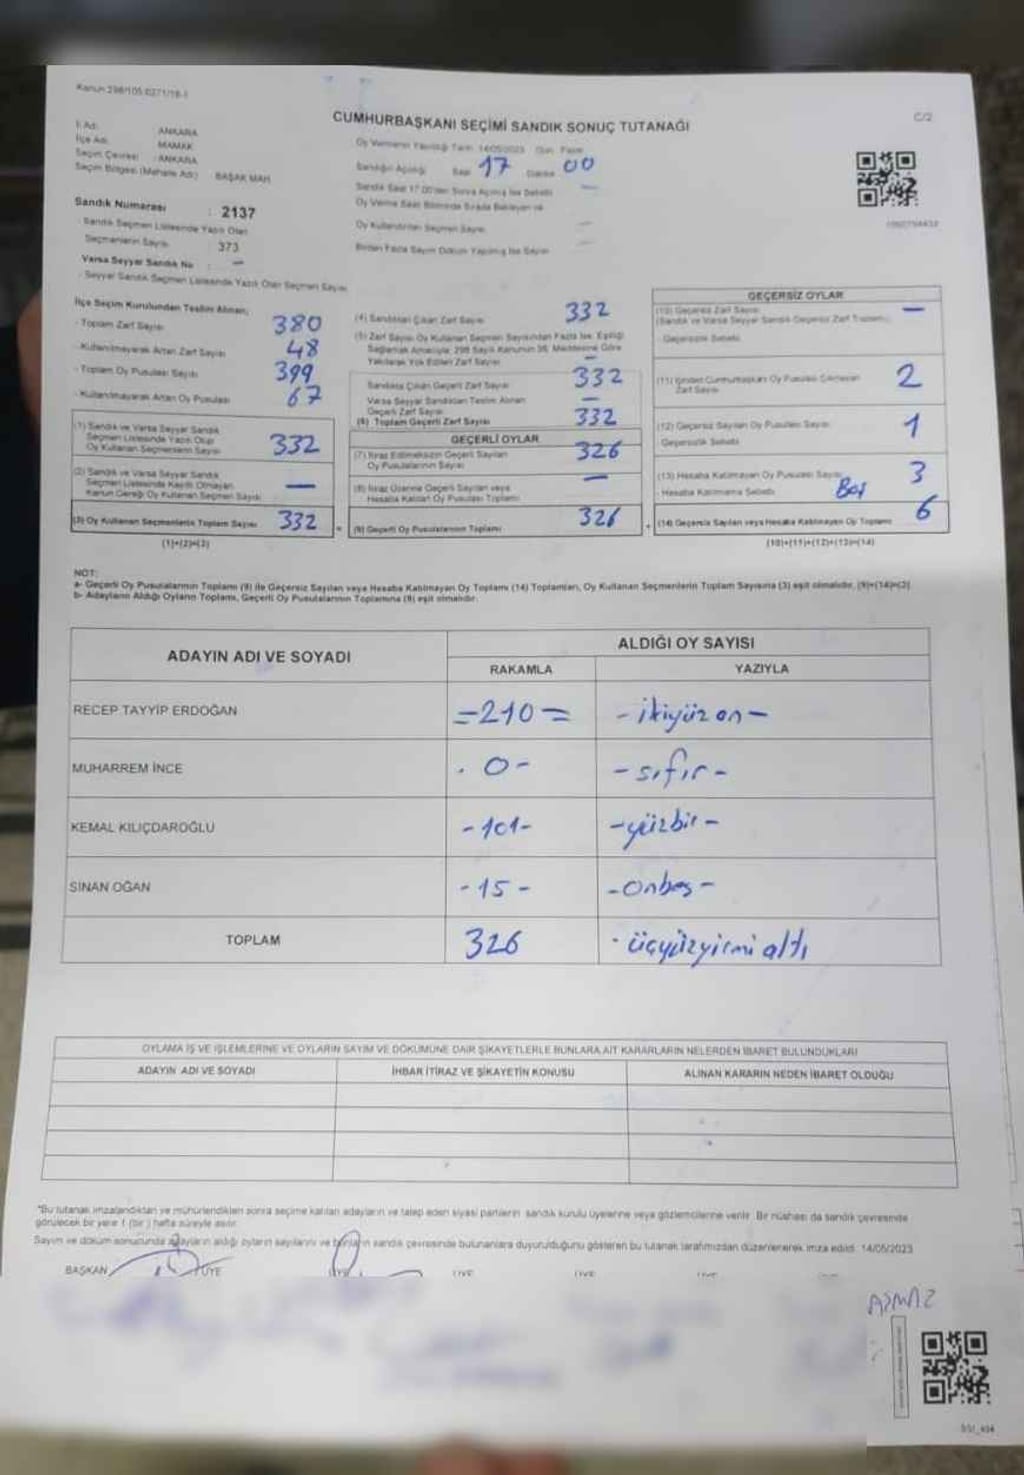 Kanun 298/105 0271/18-1
C/2
CUMHURBAŞKANI SEÇİMİ SANDIK SONUÇ TUTANAĞI
İl Adı : ANKARA
İlçe Adı : MAMAK
Seçim Çevresi : ANKARA
Seçim Bölgesi (Mahalle Adı) : BAŞAK MAH
Oy Vermenin Yapıldığı Tarih 14/05/2023 Gün Pazar
Sandığın Açıldığı Saat 17 Dakika 00
Sandık Saat 17.00'den Sonra Açılmış İse Sebebi —
Oy Verme Saati Bitiminde Sırada Bekleyen ve
Oy Kullandırılan Seçmen Sayısı —
Birden Fazla Sayım Döküm Yapılmış İse Sayısı —
Sandık Numarası : 2137
- Sandık Seçmen Listesinde Yazılı Olan
Seçmenlerin Sayısı 373
Varsa Seyyar Sandık No : —
- Seyyar Sandık Seçmen Listesinde Yazılı Olan Seçmen Sayısı
İlçe Seçim Kurulundan Teslim Alınan;
- Toplam Zarf Sayısı 380
- Kullanılmayarak Artan Zarf Sayısı 48
- Toplam Oy Pusulası Sayısı 399
- Kullanılmayarak Artan Oy Pusulası 67
(1) Sandık ve Varsa Seyyar Sandık
Seçmen Listesinde Yazılı Olup
Oy Kullanan Seçmenlerin Sayısı 332
(2) Sandık ve Varsa Seyyar Sandık
Seçmen Listesinde Kayıtlı Olmayan
Kanun Gereği Oy Kullanan Seçmen Sayısı —
(3) Oy Kullanan Seçmenlerin Toplam Sayısı 332 =
(1)+(2)=(3)
(4) Sandıktan Çıkan Zarf Sayısı 332
(5) Zarf Sayısı Oy Kullanan Seçmen Sayısından Fazla İse, Eşitliği
Sağlamak Amacıyla, 298 Sayılı Kanunun 98. Maddesine Göre
Yakılarak Yok Edilen Zarf Sayısı —
Sandıkta Çıkan Geçerli Zarf Sayısı 332
Varsa Seyyar Sandıktan Teslim Alınan
Geçerli Zarf Sayısı —
(6) Toplam Geçerli Zarf Sayısı 332
GEÇERLİ OYLAR
(7) İtiraz Edilmeksizin Geçerli Sayılan
Oy Pusulalarının Sayısı 326
(8) İtiraz Üzerine Geçerli Sayılan veya
Hesaba Katılan Oy Pusulası Toplamı —
(9) Geçerli Oy Pusulalarının Toplamı 326 +
GEÇERSİZ OYLAR
(10) Geçersiz Zarf Sayısı —
(Sandık ve Varsa Seyyar Sandık Geçersiz Zarf Toplamı)
- Geçersizlik Sebebi
(11) İçinden Cumhurbaşkanı Oy Pusulası Çıkmayan
Zarf Sayısı 2
(12) Geçersiz Sayılan Oy Pusulası Sayısı 1
Geçersizlik Sebebi
(13) Hesaba Katılmayan Oy Pusulası Sayısı 3
- Hesaba Katılmama Sebebi Boş
(14) Geçersiz Sayılan veya Hesaba Katılmayan Oy Toplamı 6
(10)+(11)+(12)+(13)=(14)
NOT:
a- Geçerli Oy Pusulalarının Toplamı (9) ile Geçersiz Sayılan veya Hesaba Katılmayan Oy Toplamı (14) Toplamları, Oy Kullanan Seçmenlerin Toplam Sayısına (3) eşit olmalıdır. (9)+(14)=(3)
b- Adayların Aldığı Oyların Toplamı, Geçerli Oy Pusulalarının Toplamına (9) eşit olmalıdır.
ADAYIN ADI VE SOYADI ALDIĞI OY SAYISI
RAKAMLA YAZIYLA
RECEP TAYYİP ERDOĞAN =210= -ikiyüz on-
MUHARREM İNCE . 0- -sıfır-
KEMAL KILIÇDAROĞLU -101- -yüzbir-
SİNAN OĞAN -15- -Onbeş-
TOPLAM 326 - üçyüzyirmi altı
OYLAMA İŞ VE İŞLEMLERİNE VE OYLARIN SAYIM VE DÖKÜMÜNE DAİR ŞİKAYETLERLE BUNLARA AİT KARARLARIN NELERDEN İBARET BULUNDUKLARI
ADAYIN ADI VE SOYADI İHBAR İTİRAZ VE ŞİKAYETİN KONUSU ALINAN KARARIN NEDEN İBARET OLDUĞU
*Bu tutanak imzalandıktan ve mühürlendikten sonra seçime katılan adayların ve talep eden siyasi partilerin sandık kurulu üyelerine veya gözlemcilerine verilir. Bir nüshası da sandık çevresinde
görülecek bir yere 1 (bir) hafta süreyle asılır.
Sayım ve döküm sonucunda adayların aldığı oyların sayılarını ve bunların sandık çevresinde bulunanlara duyurulduğunu gösteren bu tutanak tarafımızdan düzenlenerek imza edildi. 14/05/2023
BAŞKAN ÜYE ÜYE ÜYE ÜYE ÜYE